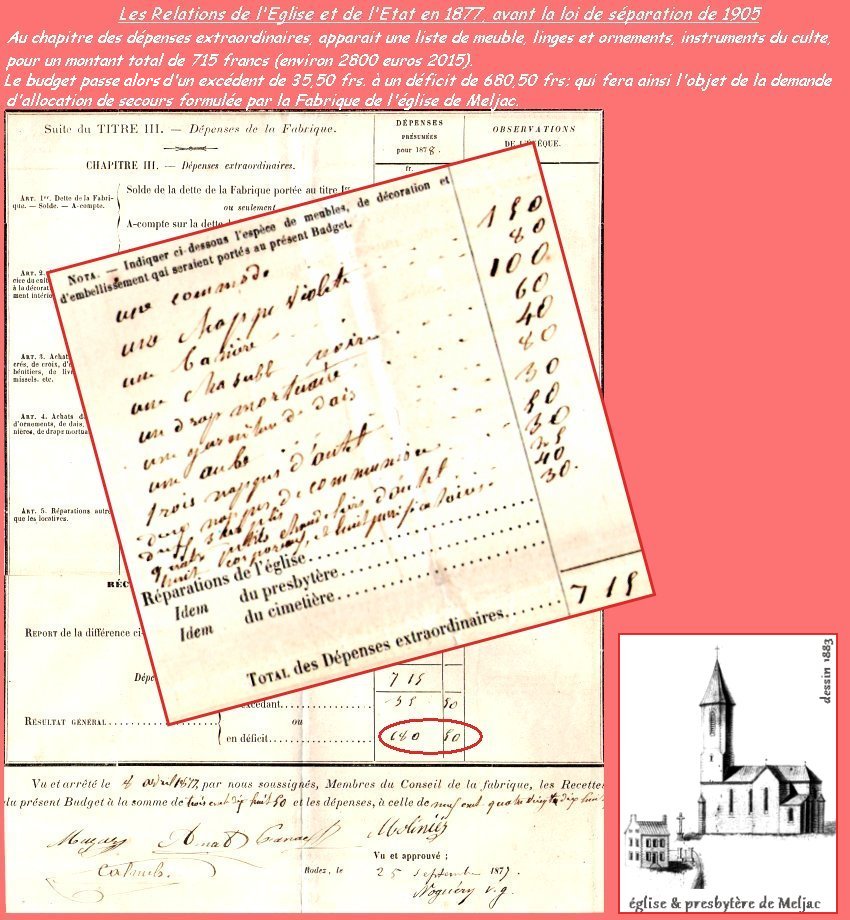 Les Relations de l'Eglise et de l'Etat en 1877, avant la loi de séparation de 1905
Au chapitre des dépenses extraordinaires, apparait une liste de meuble, linges et ornements, instruments du culte,
pour un montant total de 715 francs (environ 2800 euros 2015).
Le budget passe alors d'un excédent de 35,50 frs. à un déficit de 680,50 frs; qui fera ainsi l'objet de la demande
d'allocation de secours formulée par la Fabrique de l'église de Meljac.
Suite du TITRE III. — Dépenses de la Fabrique.
DÉPENSES
PRÉSUMÉES
pour 1878.
OBSERVATIONS
DE L'ÉVÊQUE.
CHAPITRE III. — Dépenses extraordinaires.
fr.
ART. 1er. Dette de la Fabri-
que. — Solde. — A-compte.
Solde de la dette de la Fabrique portée au titre Ier
ou seulement
A-compte sur la dette
ART. 2.
cice du cult
à la décorat
ment intérie
ART. 3. Achat
crés, de croix, d'e
bénitiers, de liv
missels, etc.
ART. 4. Achats d
d'ornements, de dais,
nières, de draps mortua
ART. 5. Réparations autre
que les locatives.
NOTA. — Indiquer ci-dessous l'espèce de meubles, de décoration et
d'embellissement qui seraient portés au présent Budget.
une commode 150
une chappe violete 80
une banière 100
une chasuble noire 60
un drap mortuaire 40
une garniture de dais 80
une aube 30
trois nappes d'autel 50
deux nappes de communion 30
deux surplis 25
quatre petits chandeliers d'autel 40
huit corporaux, et huit purificatoires 30.
Réparations de l'église
Idem du presbytère
Idem du cimetière
TOTAL des Dépenses extraordinaires 715
RÉC
REPORT de la différence ci
Dépe
715
RÉSULTAT GÉNÉRAL
excédant
35 50
ou
en déficit
680 50
Vu et arrêté le 8 avril 1877, par nous soussignés, Membres du Conseil de la fabrique, les Recettes
du présent Budget à la somme de trois cent dix huit 50 et les dépenses, à celle de neuf cent quatre vingt dix huit
Molinié
Colomb
Vu et approuvé :
Rodez, le 25 septembre 1877.
Noguéry v. g.
dessin 1883
église & presbytère de Meljac